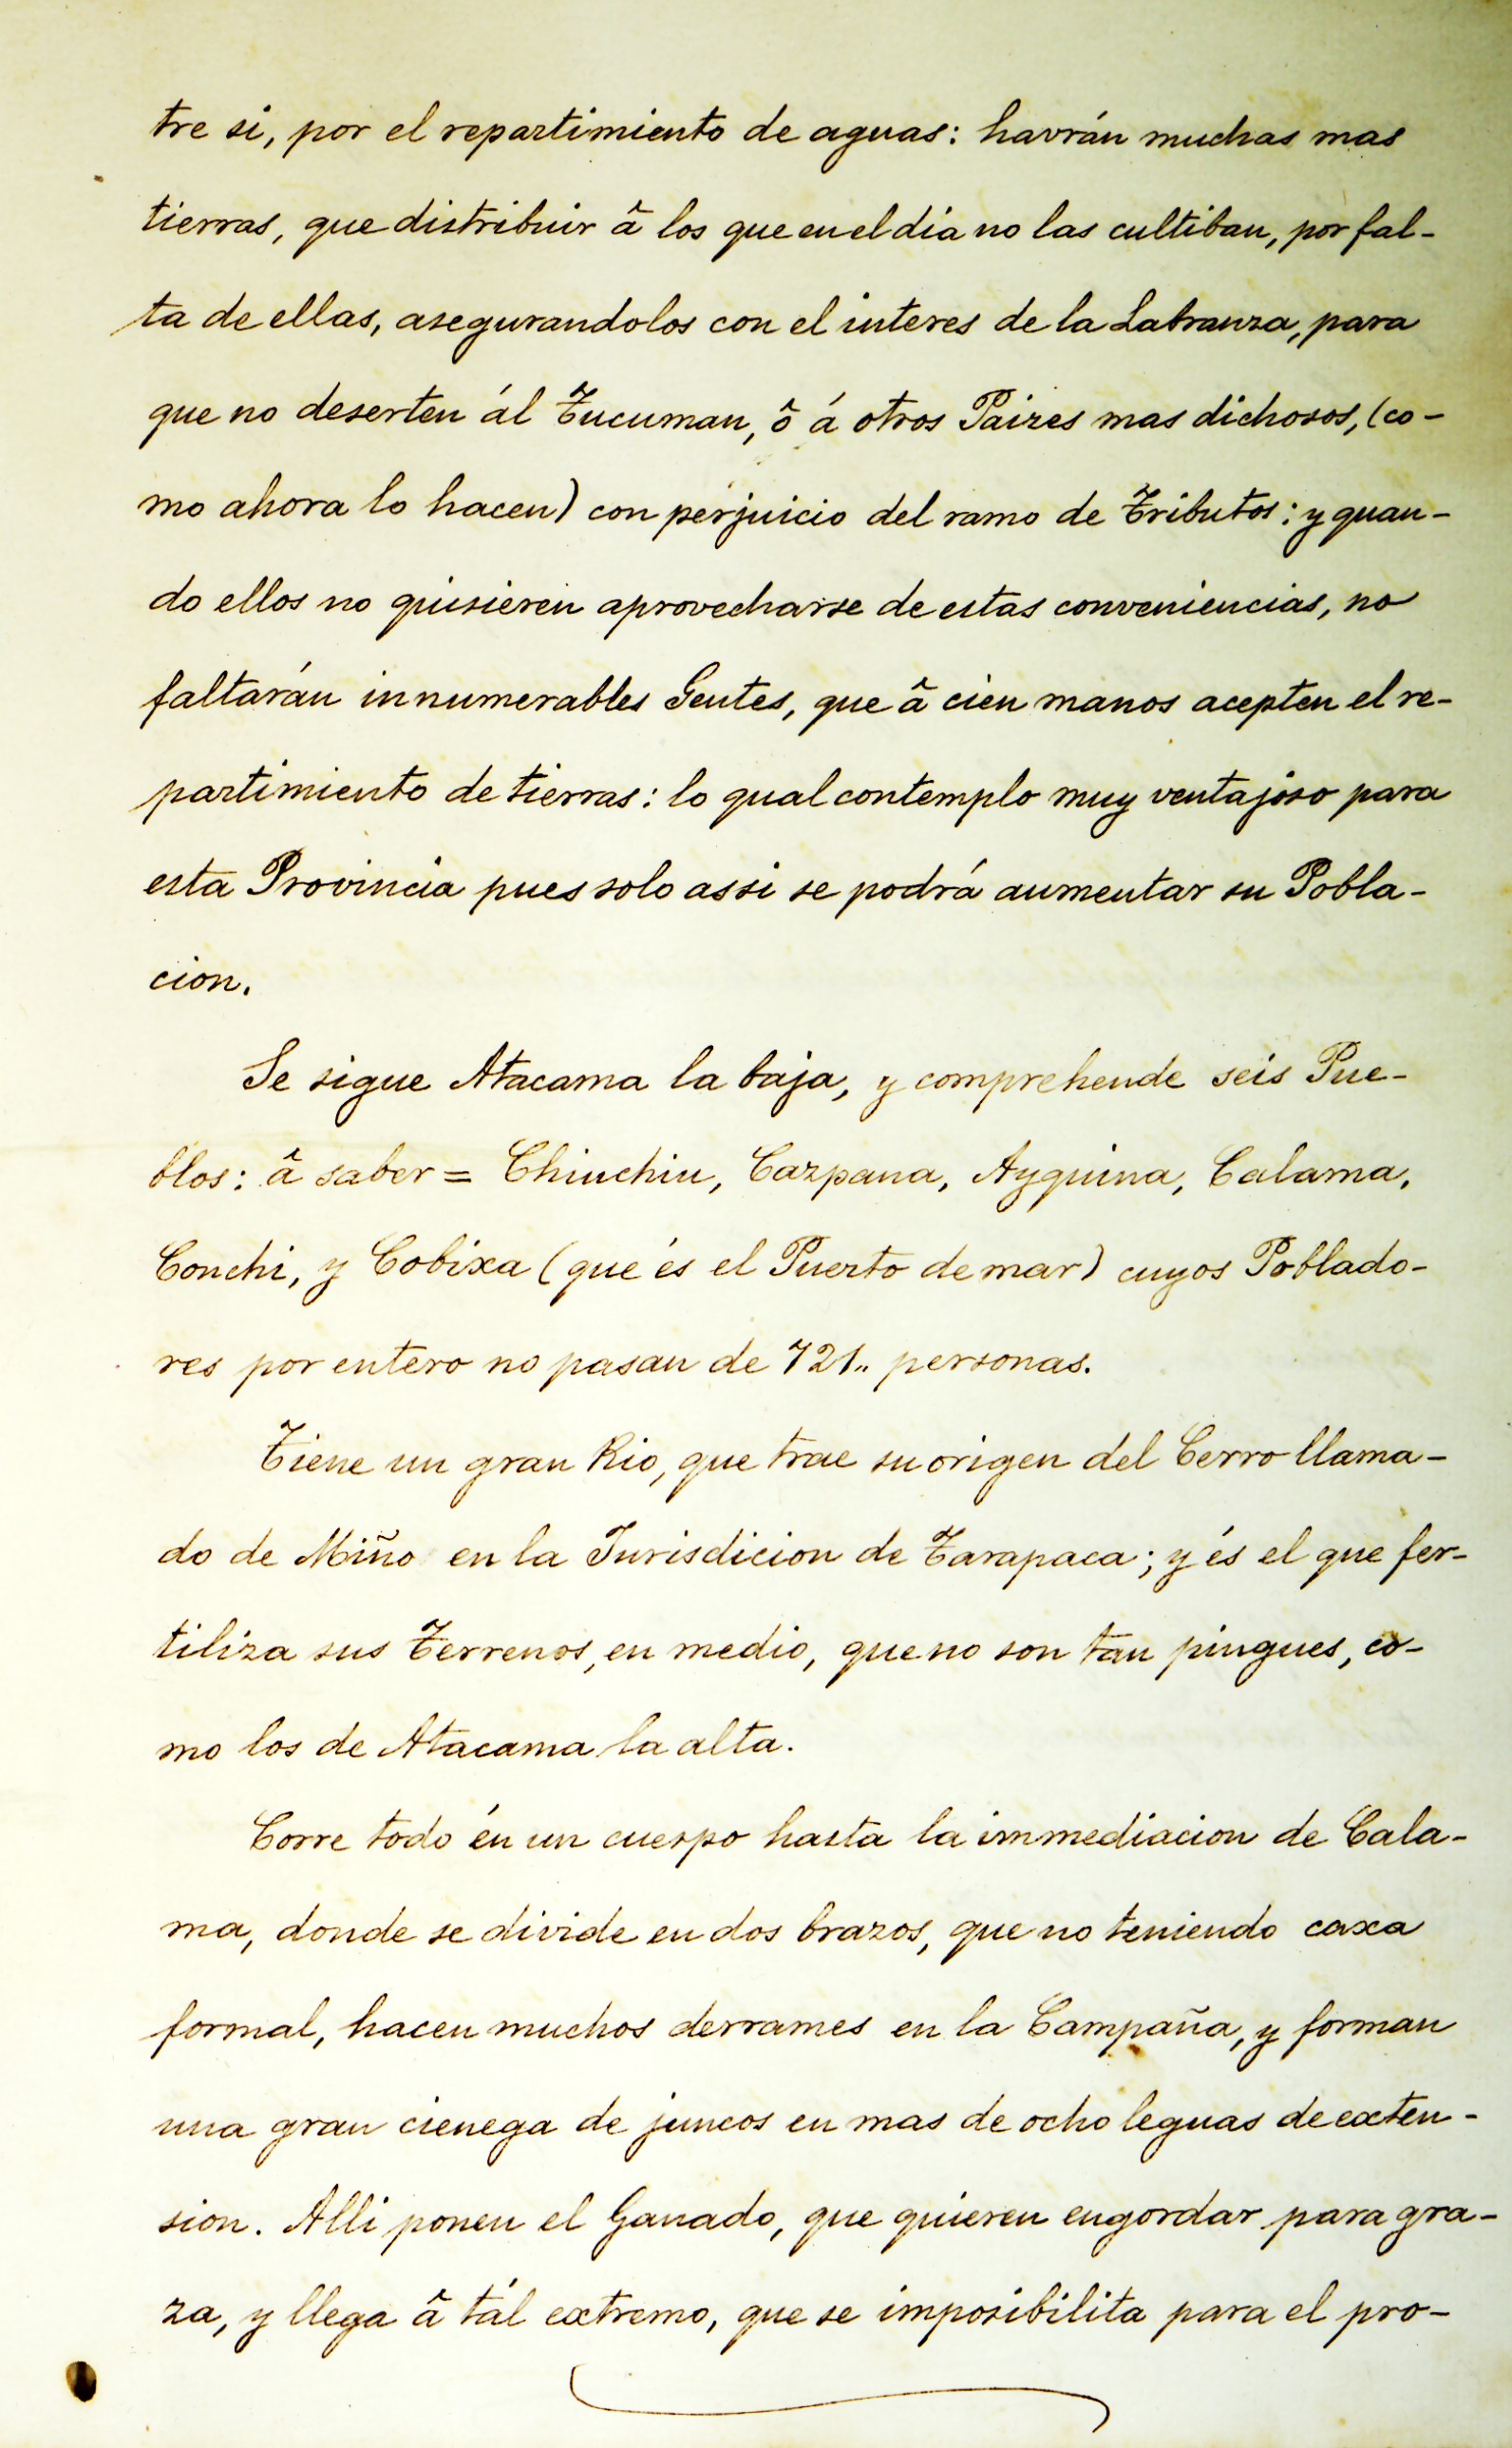 tre si, por el repartimiento de aguas: havrán muchas mas
tierras, que distribuir â los que en el dia no las cultiban, por fal-
ta de ellas, asegurandolos con el interes de la Labranza, para
que no deserten ál Tucuman, ô á otros Paizes mas dichosos, (co-
mo ahora lo hacen) con perjuicio del ramo de Tributos: y quan-
do ellos no quisieren aprovecharse de estas conveniencias, no
faltarán innumerables Gentes, que â cien manos acepten el re-
partimiento de tierras: lo qual contemplo muy ventajoso para
esta Provincia pues solo assi se podrá aumentar su Pobla-
cion.
Se sigue Atacama la baja, y comprehende seis Pue-
blos: â saber = Chiuchiu, Cazpana, Ayquina, Calama,
Conchi, y Cobixa (que és el Puerto de mar) cuyos Poblado-
res por entero no pasan de 721.. personas.
Tiene un gran Rio, que trae su origen del Cerro llama-
do de Miño en la Jurisdicion de Tarapaca; y és el que fer-
tiliza sus Terrenos, en medio, que no son tan pingues, co-
mo los de Atacama la alta.
Corre todo én un cuerpo hasta la immediacion de Cala-
ma, donde se divide en dos brazos, que no teniendo caxa
formal, hacen muchos derrames en la Campaña, y forman
una gran cienega de juncos en mas de ocho leguas de exten-
sion. Alli ponen el Ganado, que quieren engordar para gra-
za, y llega â tál extremo, que se imposibilita para el pro-